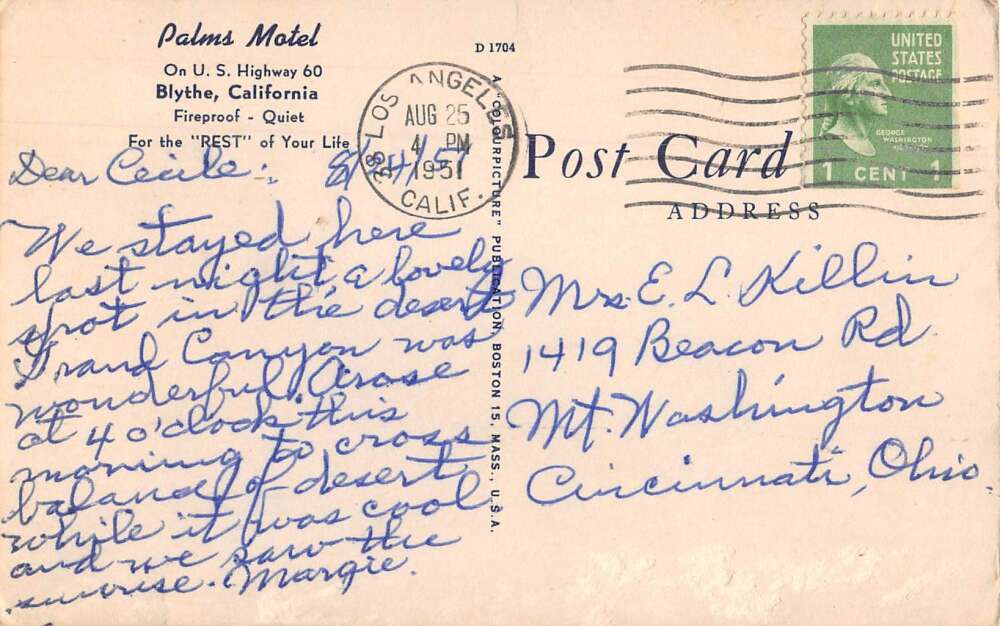 Palms Motel
On U. S. Highway 60
Blythe, California
Fireproof - Quiet
For the "REST" of Your Life
Dear Cecile:
We stayed here
last night, a lovely
spot in the desert
Grand Canyon was
wonderful. Arose
at 4 o'clock this
morning to cross
balance of desert
while it was cool
and we saw the
sunrise. Margie.
D 1704
A "COLOURPICTURE" PUBLICATION BOSTON 15, MASS., U.S.A.
LOS ANGELES
AUG 25
4 PM
1951
CALIF.
Post Card
ADDRESS
UNITED
STATES
POSTAGE
GEORGE
WASHINGTON
1 CENT 1
Mrs. E. L. Killin
1419 Beacon Rd
Mt. Washington
Cincinnati, Ohio.